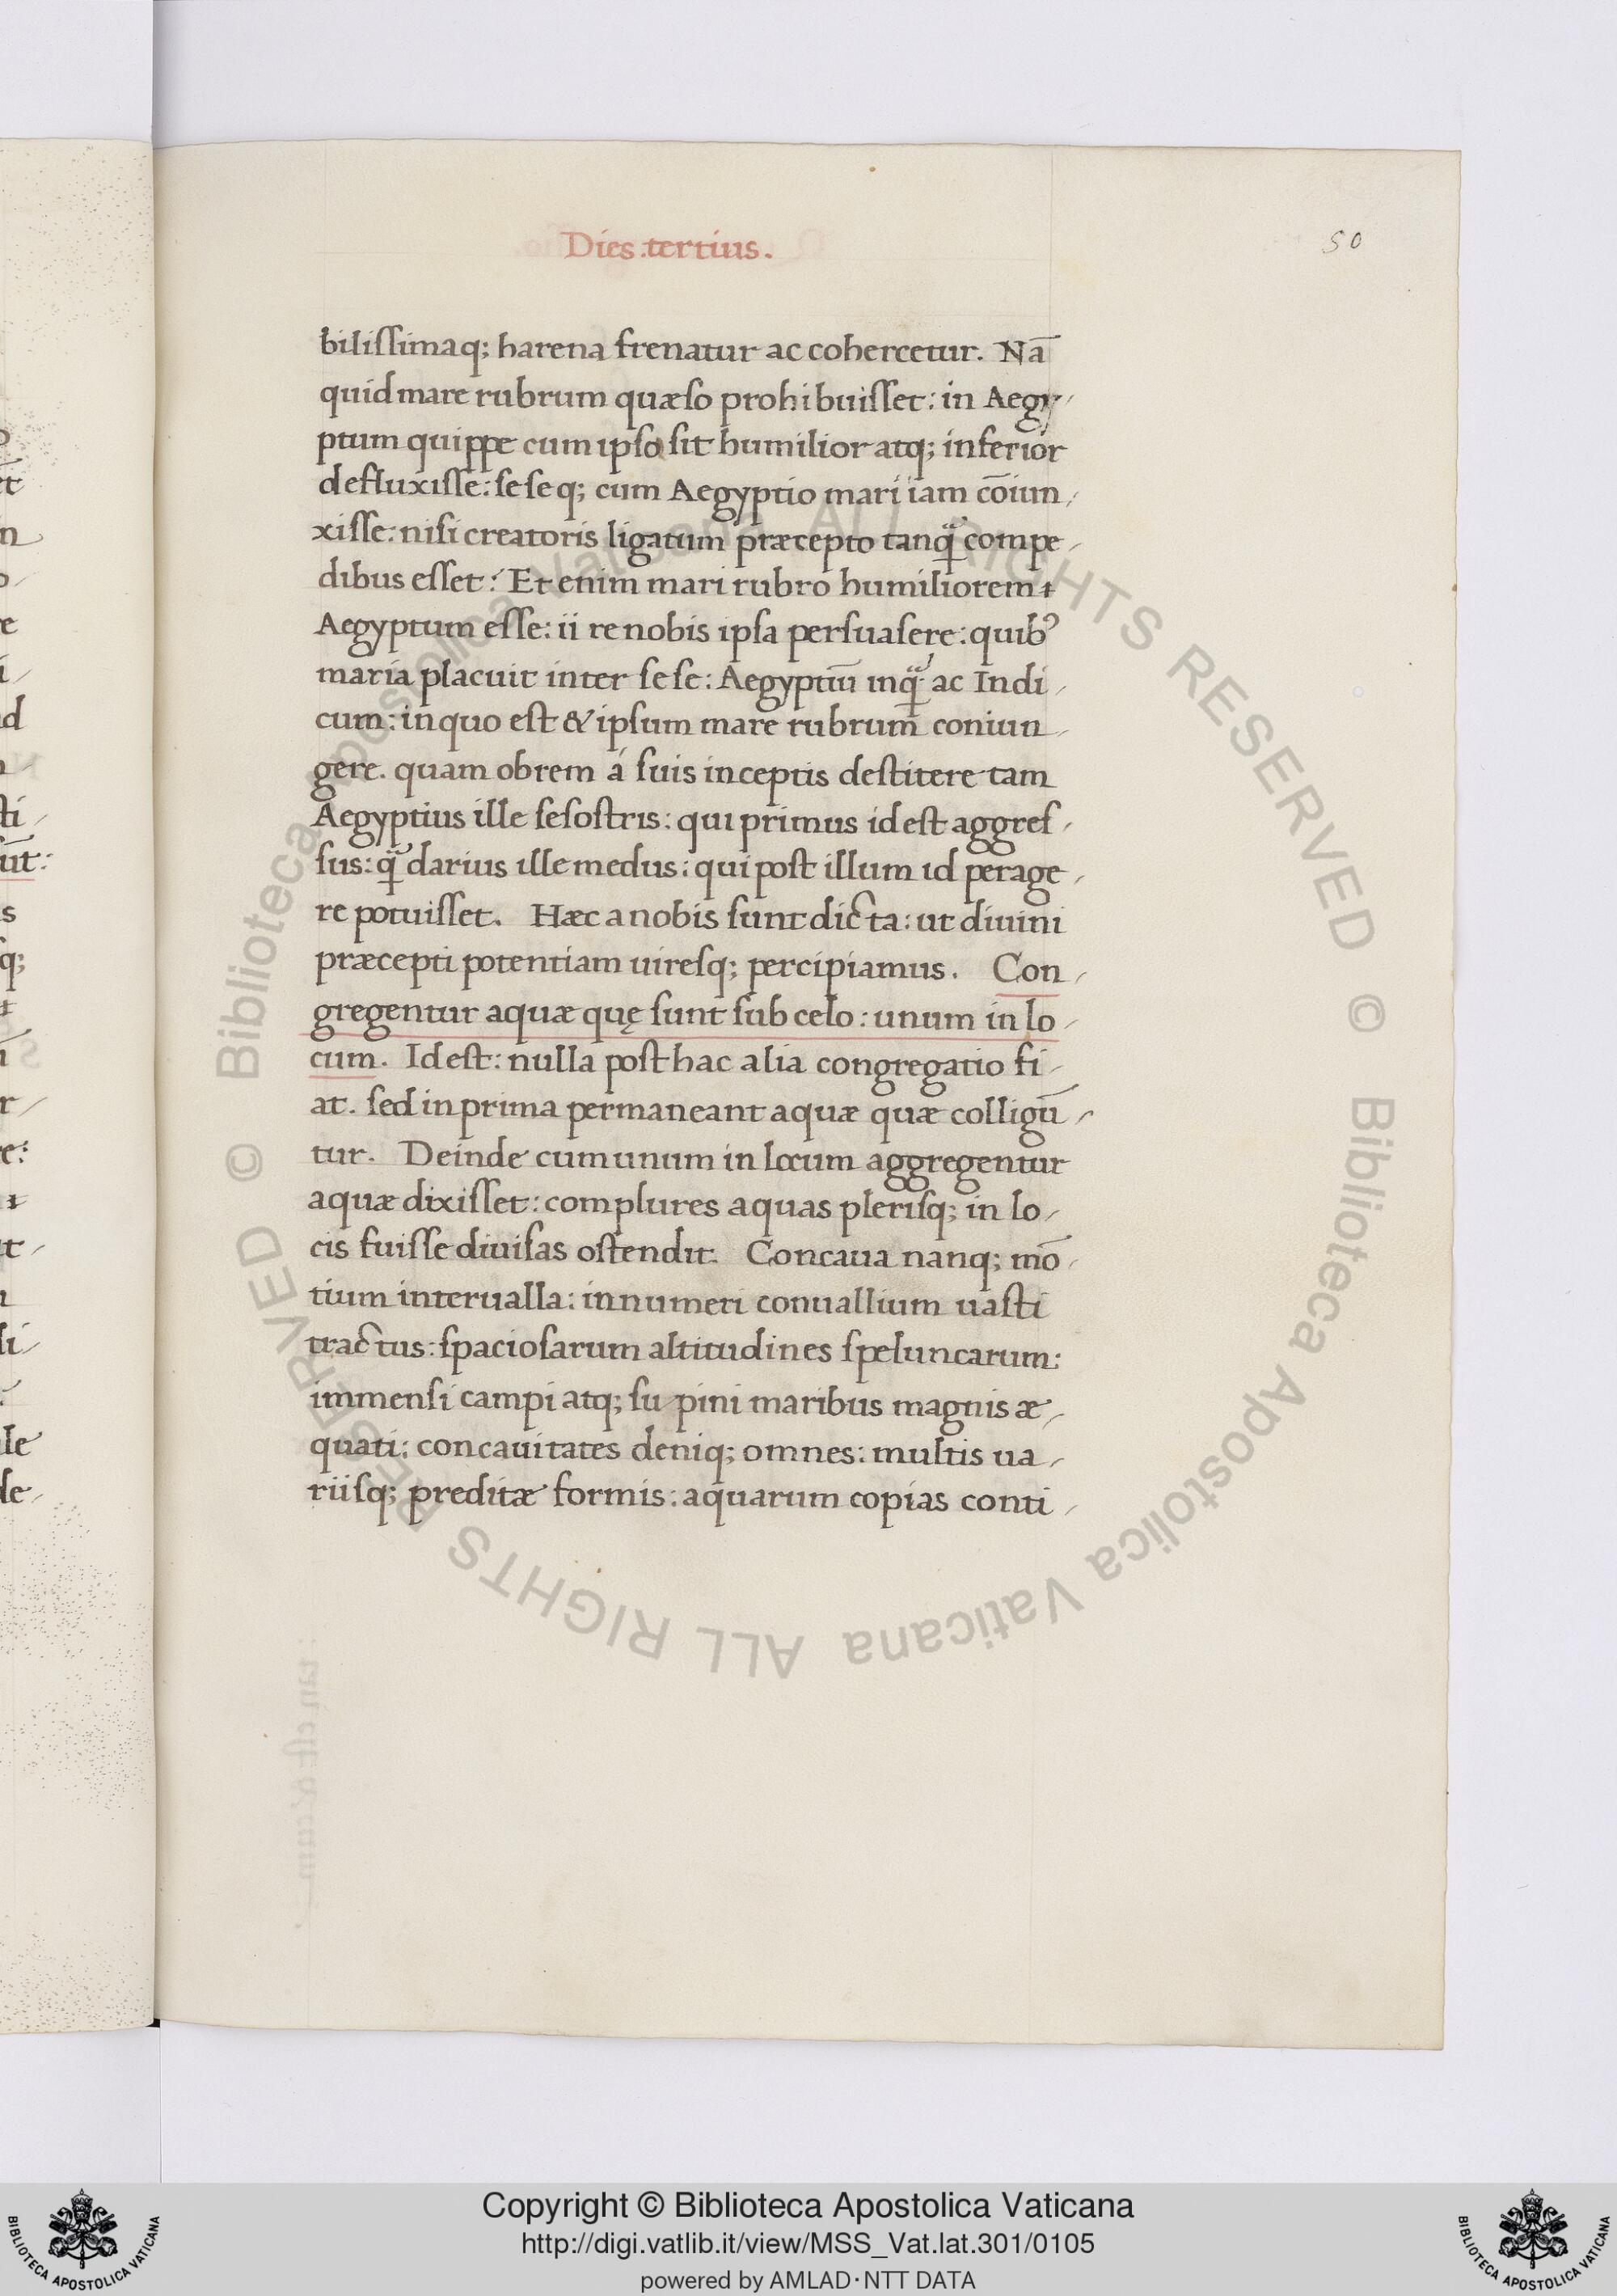 Dies tertius.
50
bilissimaq; harena frenatur ac cohercetur. Nā
quid mare rubrum quæso prohibuisset: in Aegy
ptum quippe cum ipso sit humilior atq; inferior
defluxisse: seseq; cum Aegyptio mari iam cōiun
xisse: nisi creatoris ligatum præcepto tanq̄ compe
dibus esset? Et enim mari rubro humiliorem
Aegyptum esse: ii re nobis ipsa persuasere: quib⁹
maria placuit inter sese: Aegyptiū inq̄ ac Indi
cum: in quo est & ipsum mare rubrum coniun
gere. quam obrem á suis inceptis destitere tam
Aegyptius ille sesostris: qui primus id est aggres
sus: q̄ darius ille medus: qui post illum id perage
re potuisset. Hæc a nobis sunt dicta: ut diuini
præcepti potentiam uiresq; percipiamus. Con
gregentur aquæ quę sunt sub celo: unum in lo
cum. Id est: nulla post hac alia congregatio fi
at. sed in prima permaneant aquæ quæ colligū
tur. Deinde cum unum in locum aggregentur
aquæ dixisset: complures aquas plerisq; in lo
cis fuisse diuisas ostendit. Concaua nanq; mō
tium interualla: innumeri conuallium uasti
tractus: spaciosarum altitudines speluncarum:
immensi campi atq; supini maribus magnis æ
quati: concauitates deniq; omnes: multis ua
riisq; preditæ formis: aquarum copias conti
Copyright © Biblioteca Apostolica Vaticana
http://digi.vatlib.it/view/MSS_Vat.lat.301/0105
powered by AMLAD·NTT DATA